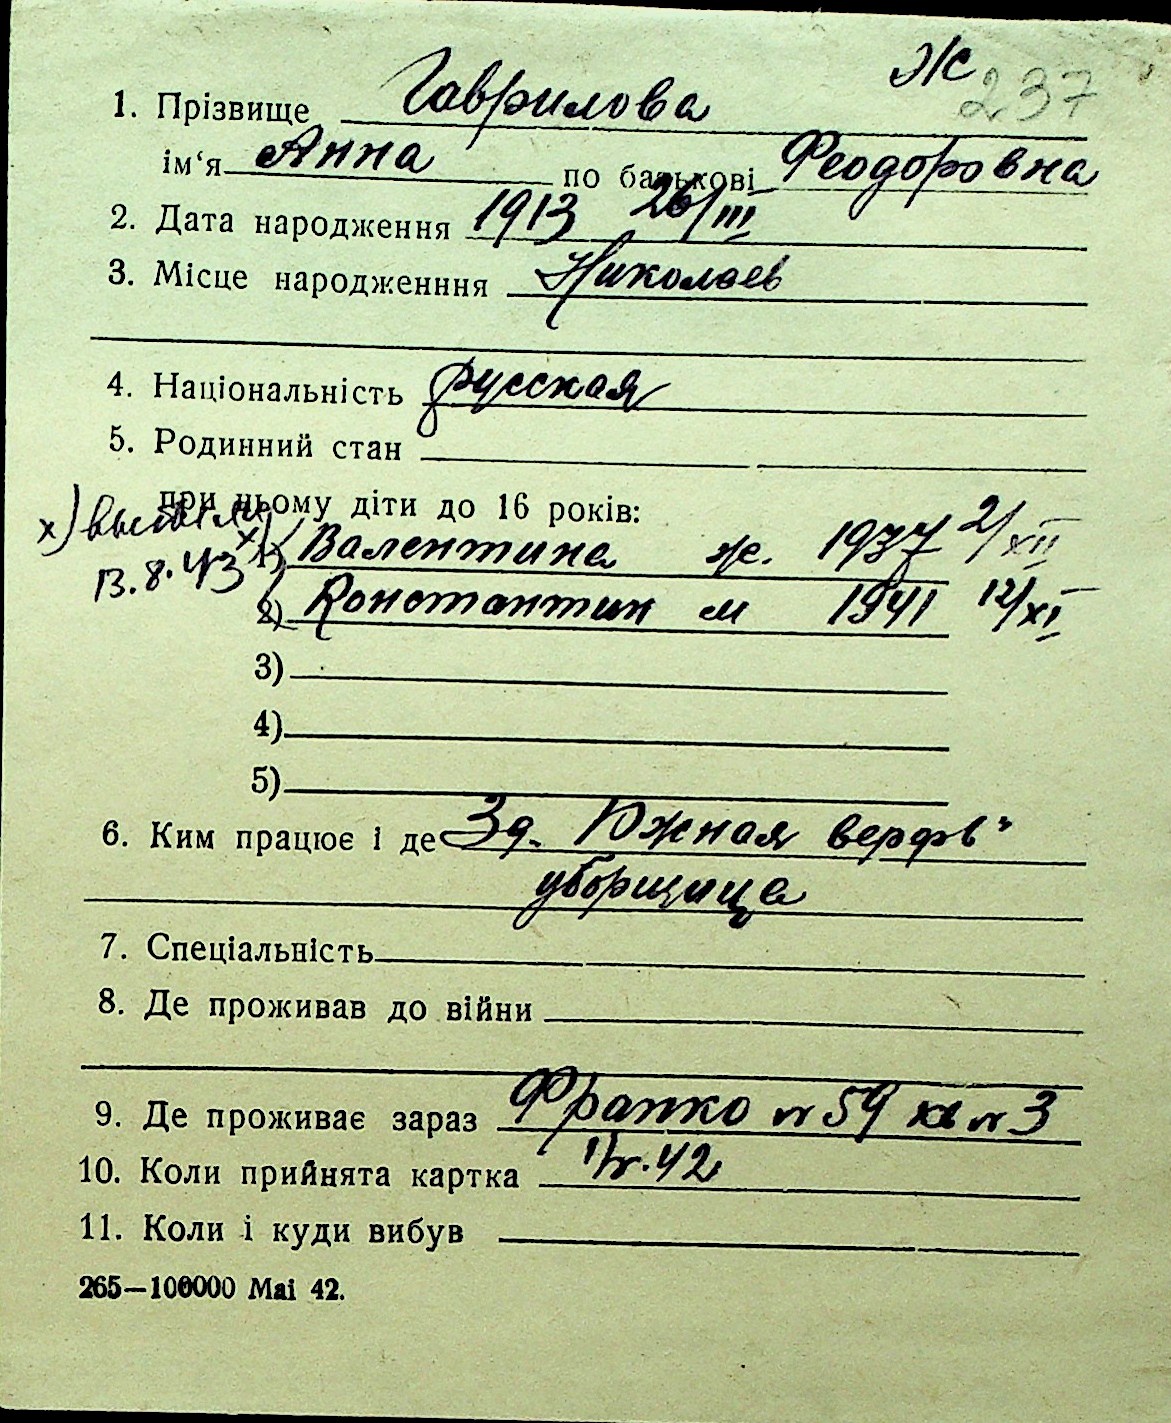 Ж 237
1. Прізвище Гаврилова
ім‘я Анна по батькові Феодоровна
2. Дата народження 1913 26/III
3. Місце народженння Николаев
4. Національність русская
5. Родинний стан
при ньому діти до 16 років:
x) выбыли
13.8.43
x) 1) Валентина ж. 1937 2/XII
2) Константин м 1941 12/XI
3)
4)
5)
6. Ким працює і де Зд. Южная верфь"
уборщица
7. Спеціальність
8. Де проживав до війни
9. Де проживає зараз Франко n 59 кв n 3
10. Коли прийнята картка 42
11. Коли і куди вибув
265—100000 Mai 42.